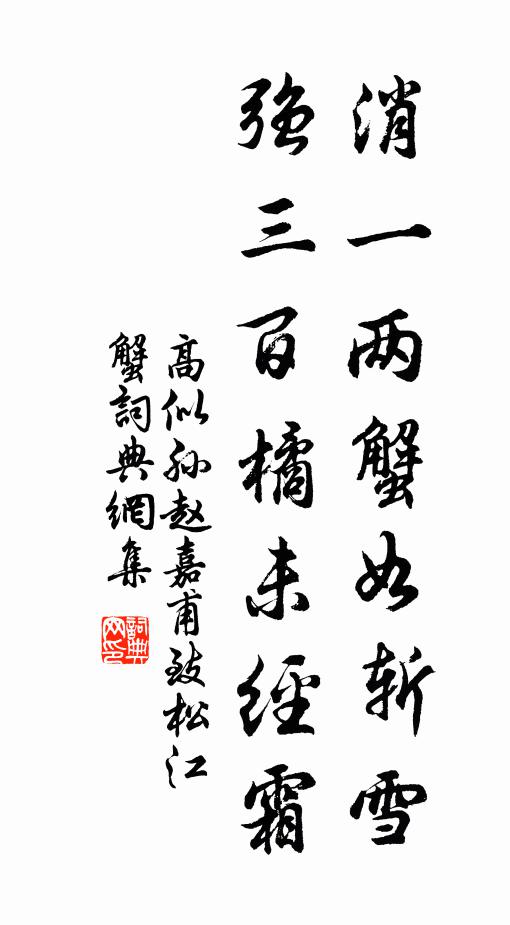 消一两蟹如斩雪
強三百橘未經霜
高似孙赵嘉甫致松江
蟹詞典網集
詞典网印